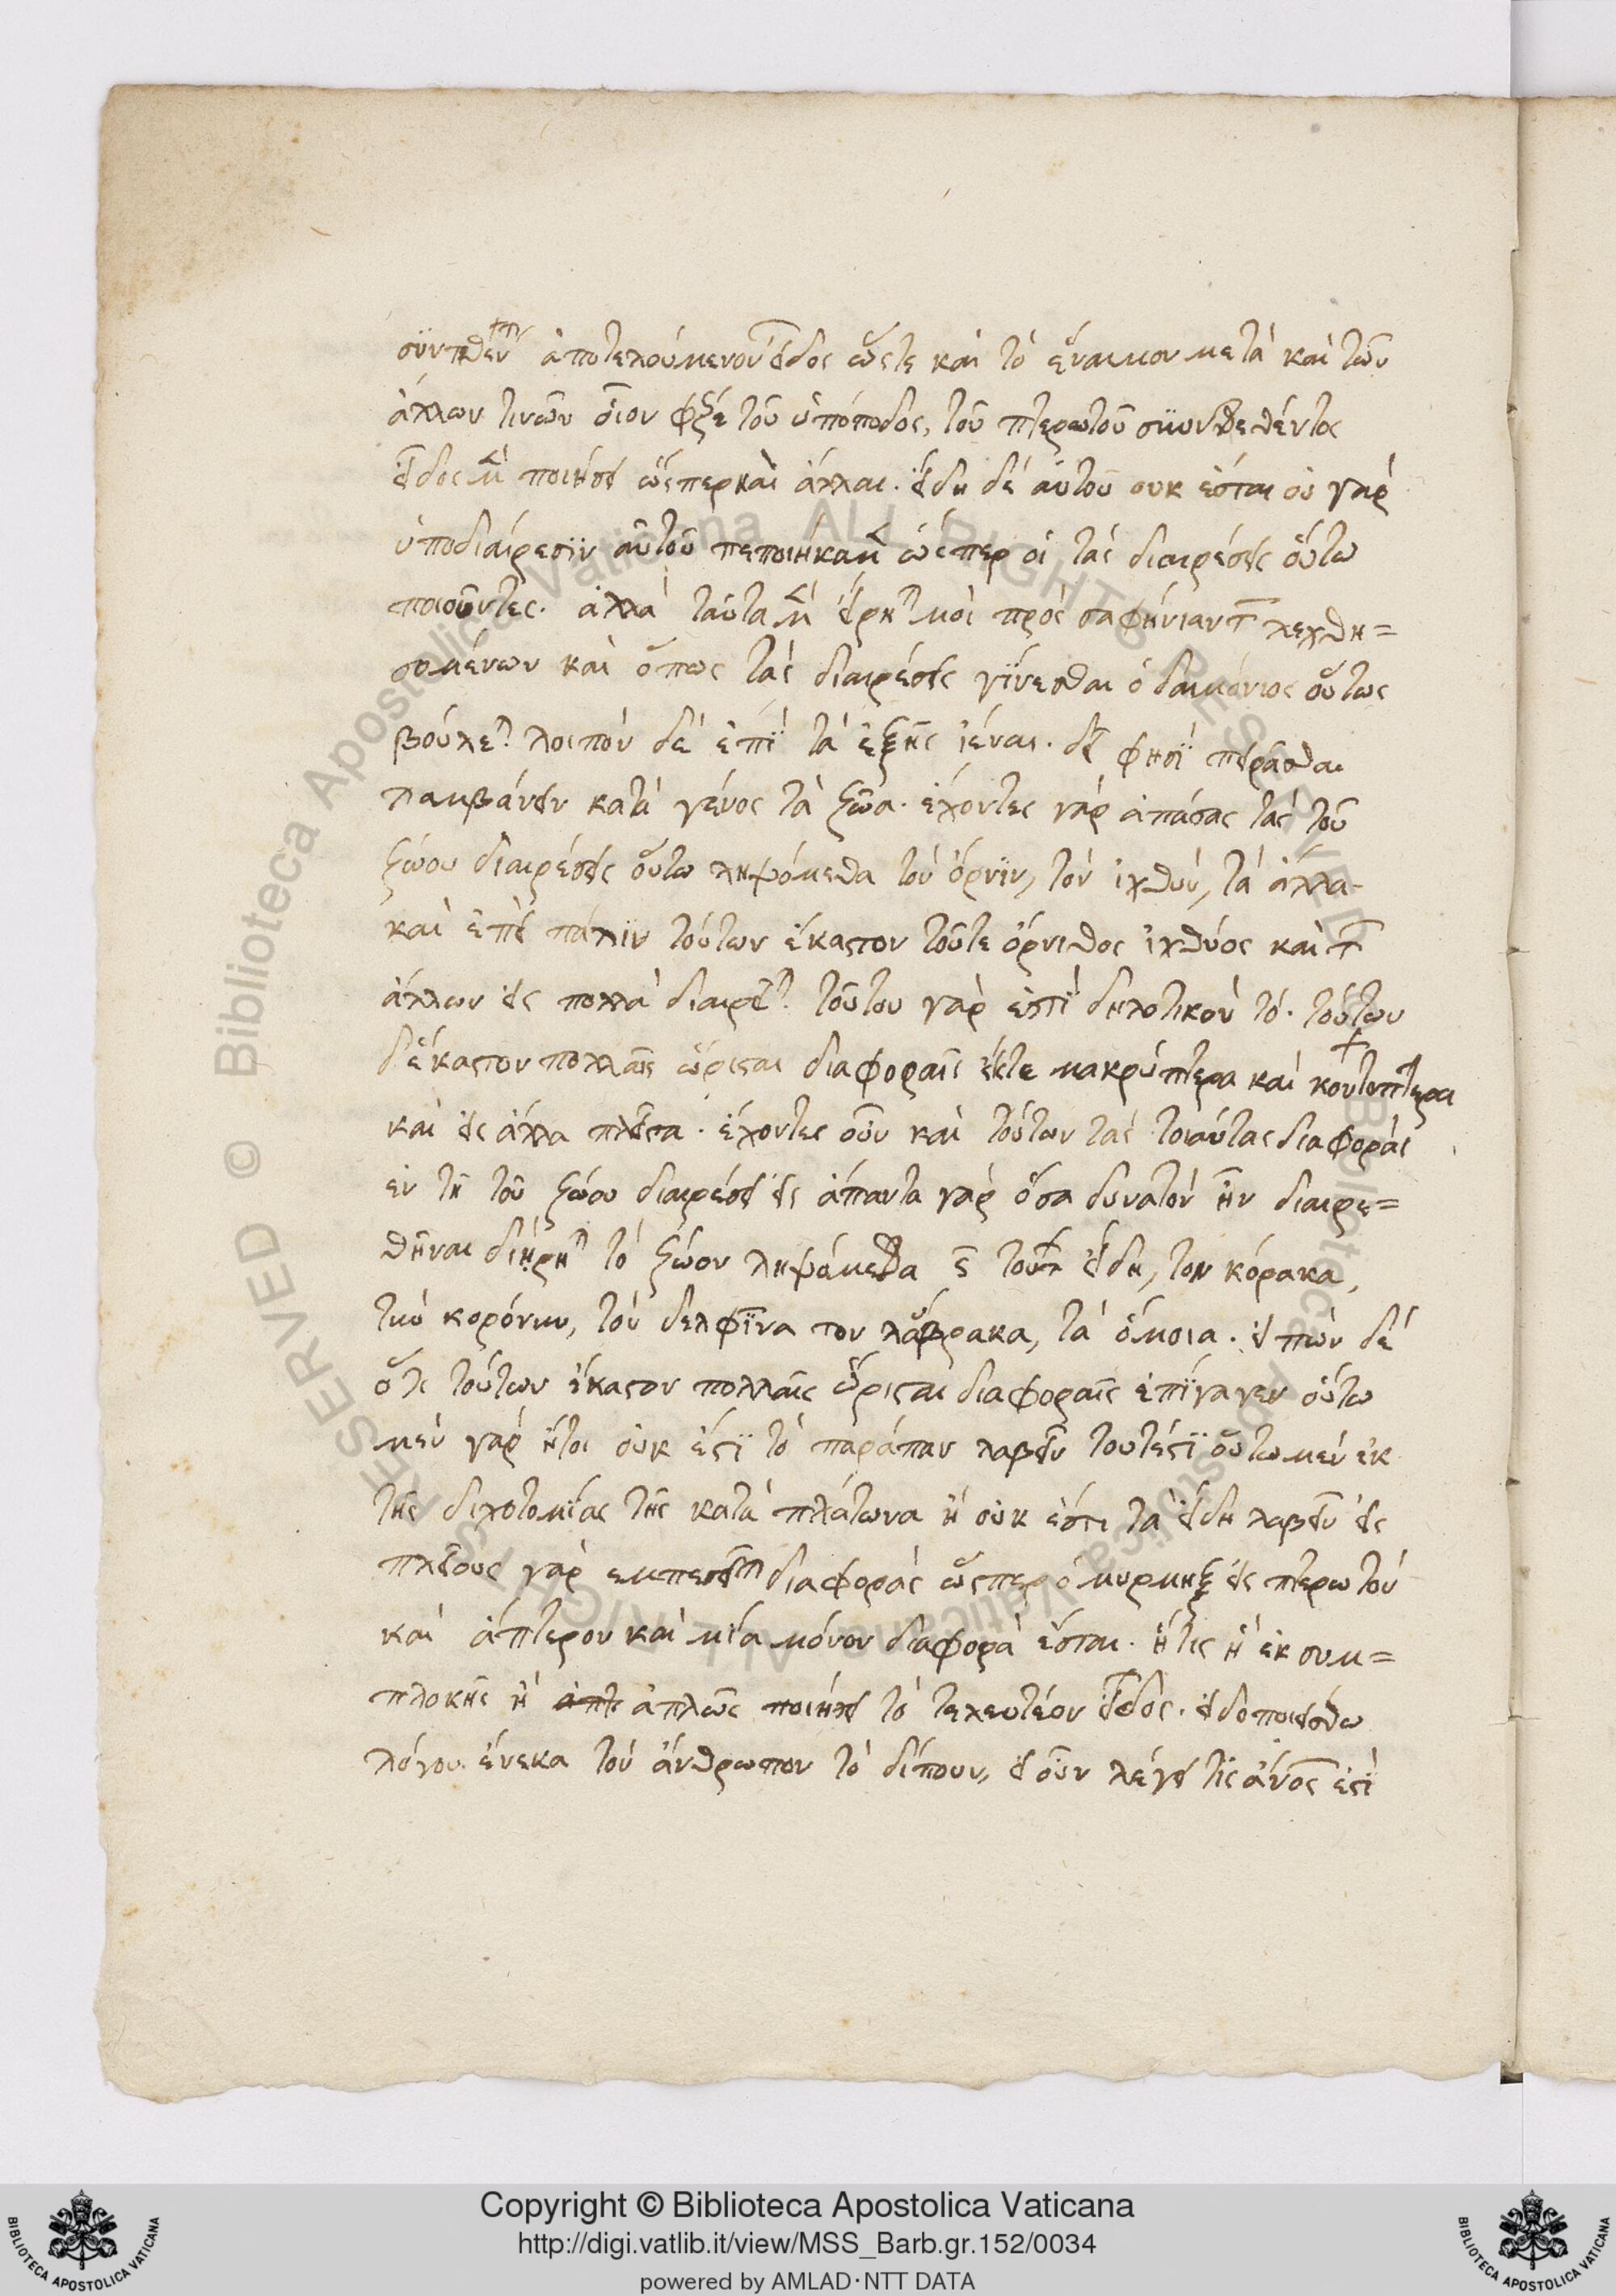 συντεθὲν ἀποτελούμενον εἶδος ὥστε καὶ τὸ ἔναιμον μετὰ καὶ τῶν
ἄλλων τινῶν οἷον τοῦ ὑπόποδος, τοῦ πτερωτοῦ συνδεθέντος
εἶδος ποιήσει ὥσπερ καὶ ἄλλαι. εἴδη δὲ αὐτοῦ οὐκ ἔσται οὐ γὰρ
ὑποδιαίρεσιν αὐτοῦ ὥσπερ οἱ τὰς διαιρέσεις οὕτω
ποιοῦντες. ἀλλὰ ταῦτα μὲν εἴρηταί μοι πρὸς σαφήνειαν τῶν λεχθη=
σομένων καὶ ὅπως τὰς διαιρέσεις γίνεσθαι ὁ δαιμόνιος οὗτος
βούλεται. λοιπὸν δὲ ἐπὶ τὰ ἑξῆς ἰέναι. δεῖ φησὶ πειρᾶσθαι
λαμβάνειν κατὰ γένος τὰ ζῶα. ἔχοντες γὰρ ἁπάσας τὰς τοῦ
ζώου διαιρέσεις οὕτω ληψόμεθα τὸν ὄρνιν, τὸν ἰχθύν, τὰ ἄλλα.
καὶ ἐπεὶ πάλιν τούτων ἕκαστον τοῦτε ὄρνιθος ἰχθύος καὶ τῶν
ἄλλων εἰς πολλὰ διαιρεῖται. τούτου γὰρ ἐστὶ δηλοτικὸν τὸ. τούτων
δ' ἕκαστον πολλαῖς ὥρισται διαφοραῖς εἴτε μακρόπτερα καὶ κοντόπτερα
καὶ εἰς ἄλλα πλεῖστα. ἔχοντες οὖν καὶ τούτων τὰς τοιαύτας διαφορὰς
ἐν τῇ τοῦ ζώου διαιρέσει εἰς ἅπαντα γὰρ ὅσα δυνατὸν ἦν διαιρε=
θῆναι διῄρηται τὸ ζῶον ληψόμεθα καὶ τούτων εἴδη, τὸν κόρακα,
τὴν κορόνην, τὸν δελφῖνα τὸν λάβρακα, τὰ ὅμοια. εἰπὼν δὲ
ὅτι τούτων ἕκαστον πολλαῖς ὥρισται διαφοραῖς ἐπήγαγεν οὕτω
μὲν γὰρ ἤτοι οὐκ ἔστι τὸ παράπαν λαβεῖν τουτέστι οὕτω μὲν ἐκ
τῆς διχοτομίας τῆς κατὰ πλάτωνα ἢ οὐκ ἔστι τὰ εἴδη λαβεῖν εἰς
πλείους γὰρ ἐμπεσεῖται διαφορὰς ὥσπερ ὁ μύρμηξ εἰς πτερωτὸν
καὶ ἄπτερον καὶ μία μόνον διαφορὰ ἔσται. ἥτις ἢ ἐκ συμ=
πλοκῆς ἢ ἁπλῶς ποιήσει τὸ τελευτέον εἶδος. εἰδοποιείσθω
λόγου ἕνεκα τὸν ἄνθρωπον τὸ δίπουν, εἰ οὖν λέγει τις ἄνος ἐστὶ
Copyright © Biblioteca Apostolica Vaticana
http://digi.vatlib.it/view/MSS_Barb.gr.152/0034
powered by AMLAD·NTT DATA